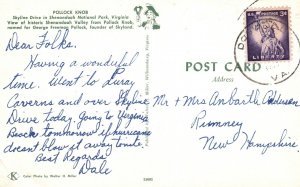 POLLOCK KNOB
Skyline Drive in Shenandoah National Park, Virginia
View of historic Shenandoah Valley from Pollock Knob,
named for George Freeman Pollock, founder of Skyland.
Dear Folks.
Having a wonderful
time. Went to Luray
Caverns and over Skyline
Drive today. Going to Virginia
Beach tomorrow if hurricane
doesnt blow it away tonite.
Best Regards
Dale
K
Color Photo by Walter H. Miller
POST CARD
Address
U.S. POSTAGE 3¢
LIBERTY
VA.
Mr + Mrs Anbarth Andersen
Rumney
New Hampshire